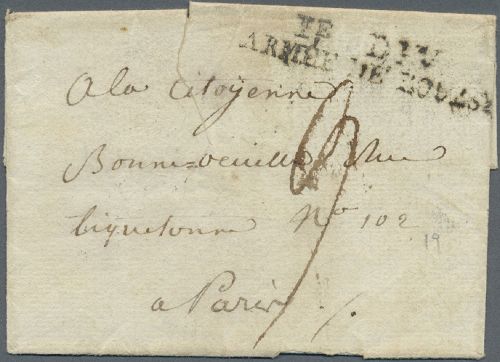 1E DIV
ARMÉE DE L'OUEST
A la Citoyenne
Bonne-veuille Rue
tiquetonne No 102
a Paris
19